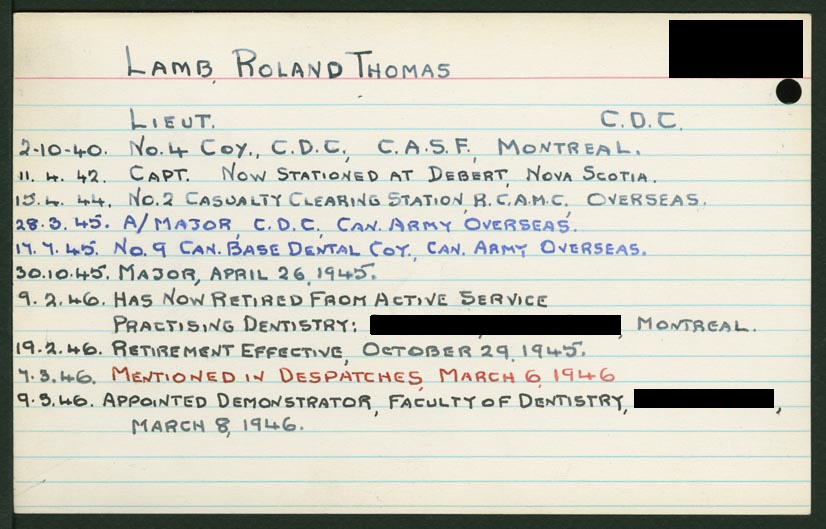 LAMB, ROLAND THOMAS
LIEUT. C.D.C.
2-10-40. No. 4 COY., C.D.C., C.A.S.F., MONTREAL.
11. 4. 42. CAPT. NOW STATIONED AT DEBERT, NOVA SCOTIA.
15. 4. 44. No. 2 CASUALTY CLEARING STATION, R.C.A.M.C., OVERSEAS.
28. 3. 45. A/MAJOR, C.D.C., CAN. ARMY OVERSEAS.
17. 7. 45. No. 9 CAN. BASE DENTAL COY., CAN. ARMY OVERSEAS.
30.10.45. MAJOR, APRIL 26, 1945.
9. 2. 46. HAS NOW RETIRED FROM ACTIVE SERVICE
PRACTISING DENTISTRY: , MONTREAL.
19.2.46. RETIREMENT EFFECTIVE, OCTOBER 29, 1945.
7.3.46. MENTIONED IN DESPATCHES, MARCH 6, 1946
9.3.46. APPOINTED DEMONSTRATOR, FACULTY OF DENTISTRY, ,
MARCH 8, 1946.